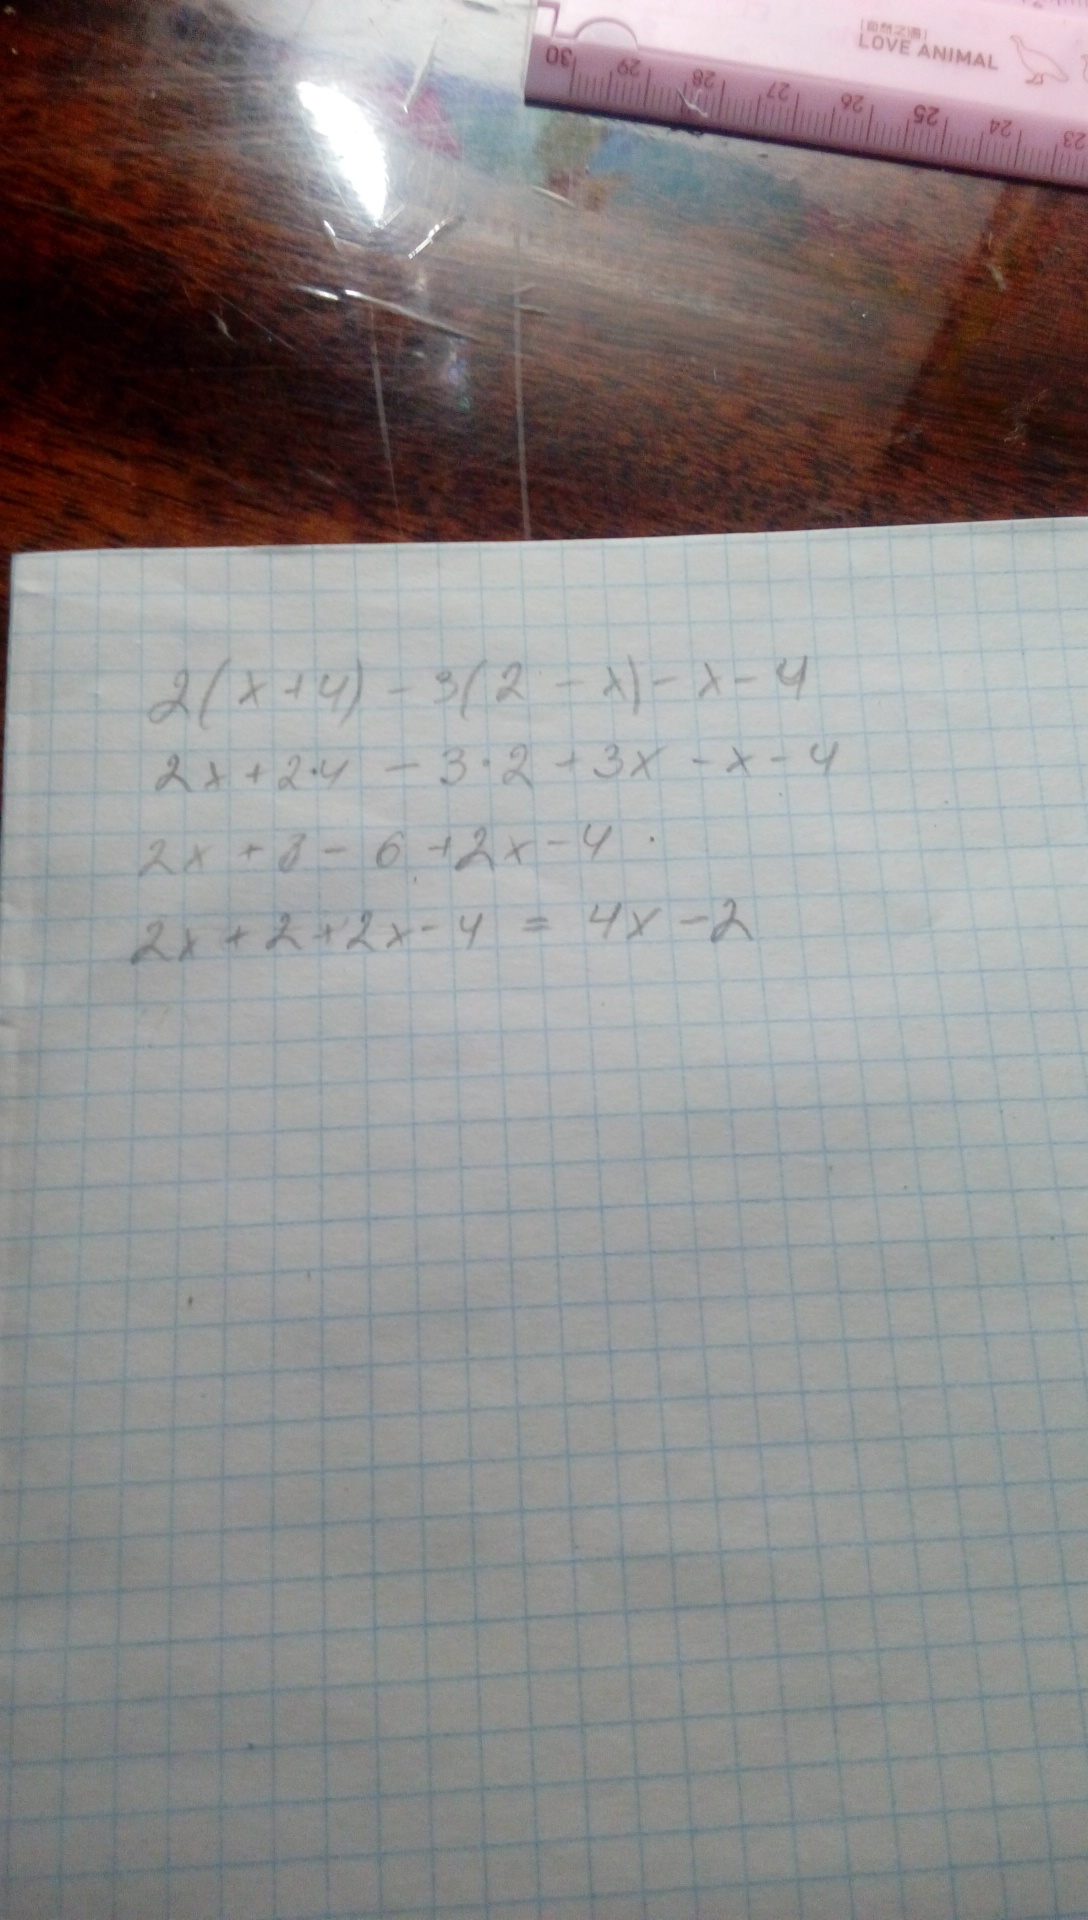 [自然之语]
LOVE ANIMAL
30 29 28 27 26 25 24 23
2(x+4) - 3(2 - x) - x - 4
2x + 2·4 - 3·2 + 3x - x - 4
2x + 8 - 6 + 2x - 4
2x + 2 + 2x - 4 = 4x - 2